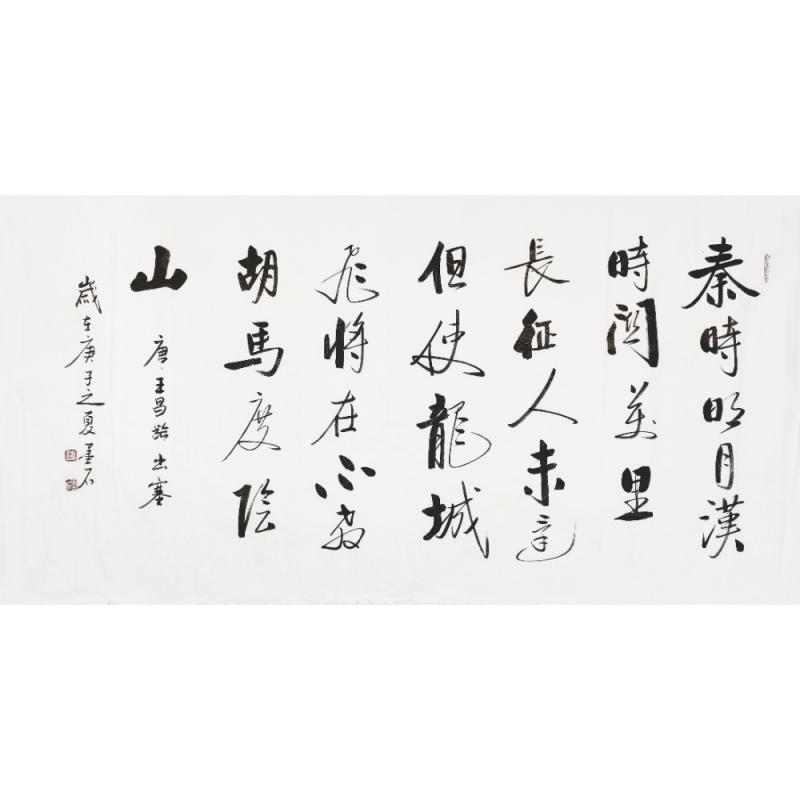 秦時明月漢
時關萬里
長征人未還
但使龍城
飛將在不教
胡馬度陰
山
唐·王昌齡出塞
歲在庚子之夏墨石